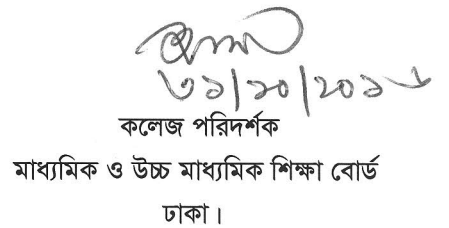 ৩১/১০/২০১৮
কলেজ পরিদর্শক
মাধ্যমিক ও উচ্চ মাধ্যমিক শিক্ষা বোর্ড
ঢাকা।